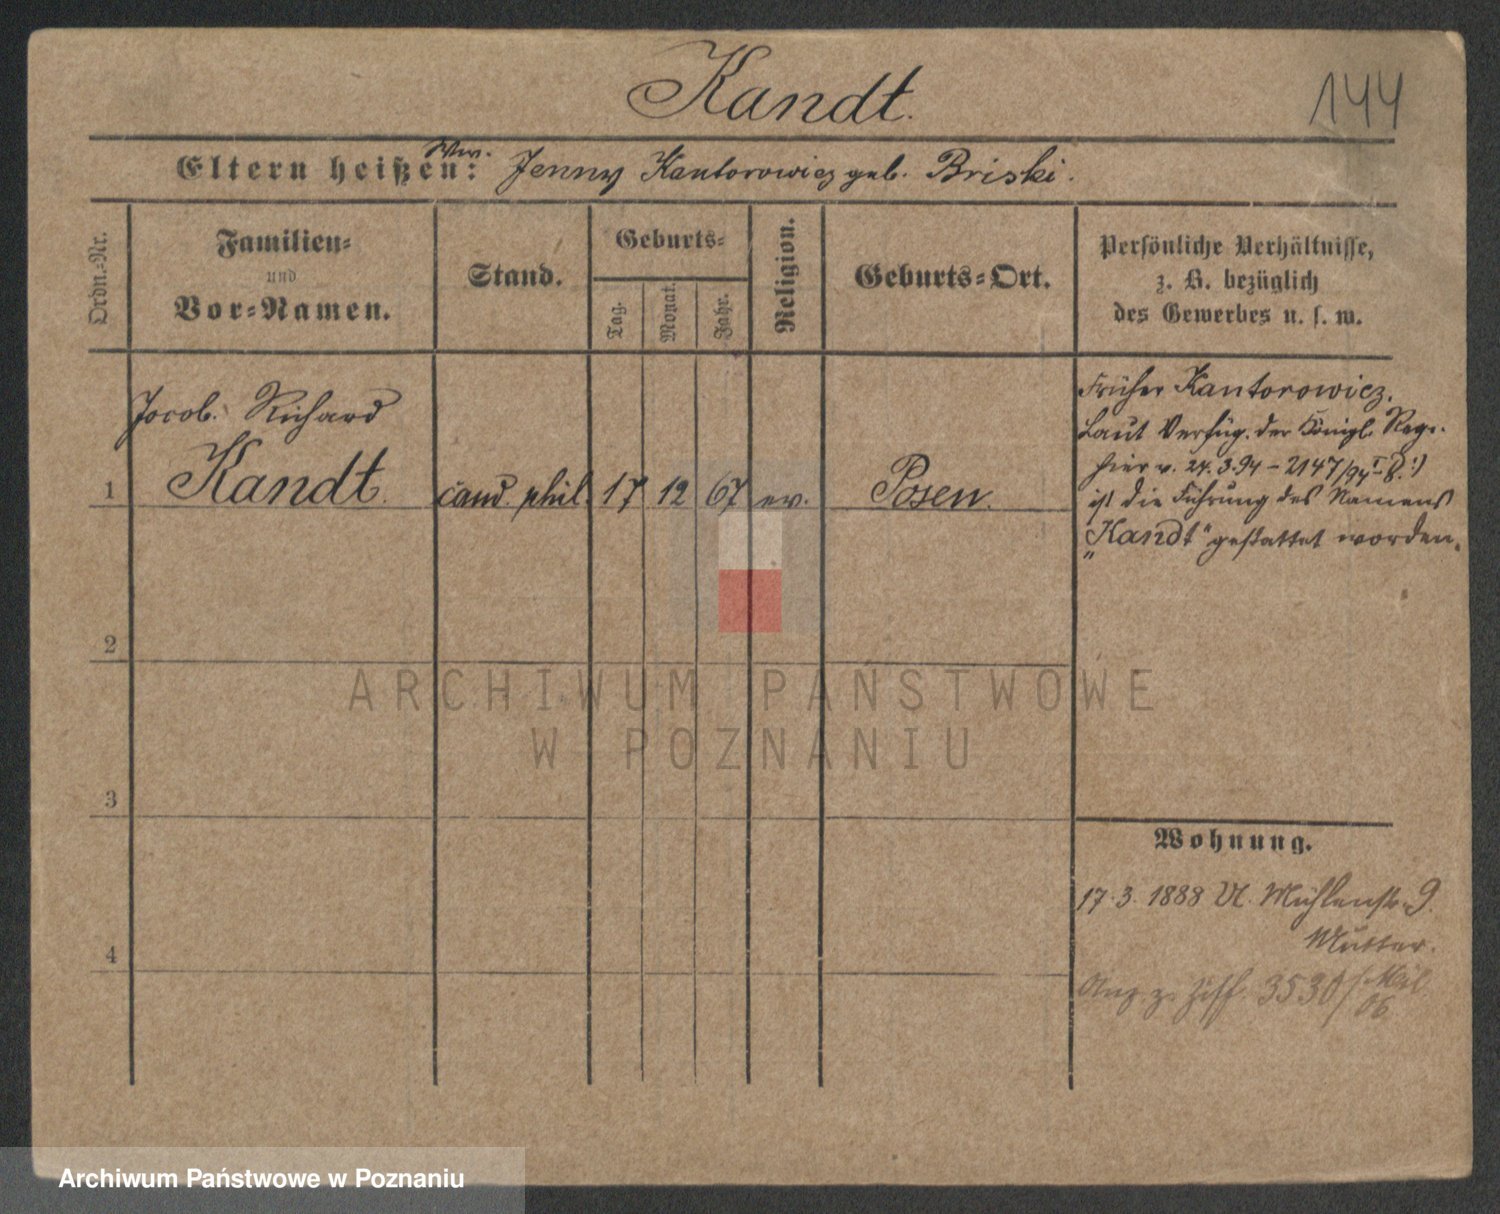 Kandt.
144
Eltern heißen: Ww. Jenny Kantorowicz geb. Briski.
Ordn.-Nr.
Familien-
und
Vor-Namen.
Stand.
Geburts-
Tag.
Monat.
Jahr.
Religion.
Geburts-Ort.
Persönliche Verhältnisse,
z. B. bezüglich
des Gewerbes u. s. w.
Jacob. Richard
1 Kandt. cand. phil. 17 12 67 ev. Posen.
Früher Kantorowicz.
Laut Verfüg. der Königl. Reg.
hier v. 24.3.94 – 2147/94 I B.
ist die Führung des Namens
„Kandt" gestattet worden.
2
3
4
Wohnung.
17.3.1888 Mühlenstr. 9.
Mutter.
3530/
06
ARCHIWUM PAŃSTWOWE
W POZNANIU
Archiwum Państwowe w Poznaniu